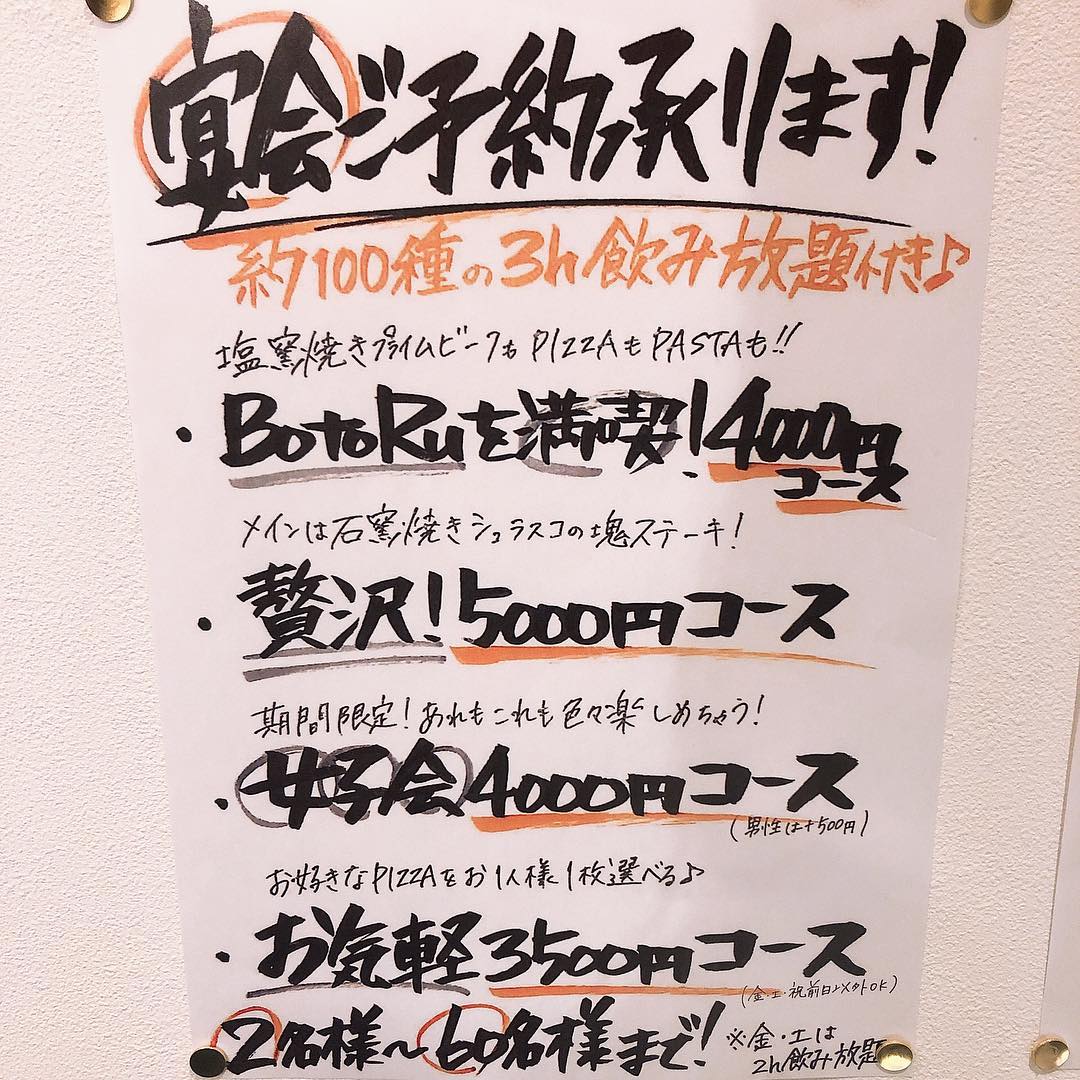 宴会ご予約承ります!
約100種の3h飲み放題付き♪
塩窯焼きプライムビーフもPIZZAもPASTAも!!
・BotoRuを満喫!4000円
コース
メインは石窯焼きシュラスコの塊ステーキ!
・贅沢!5000円コース
期間限定!あれもこれも色々楽しめちゃう!
・女子会4000円コース
(男性は+500円)
お好きなPIZZAをお1人様1枚選べる♪
・お気軽3500円コース
(金・土・祝前日以外OK)
2名様~60名様まで!
※金・土は
2h飲み放題